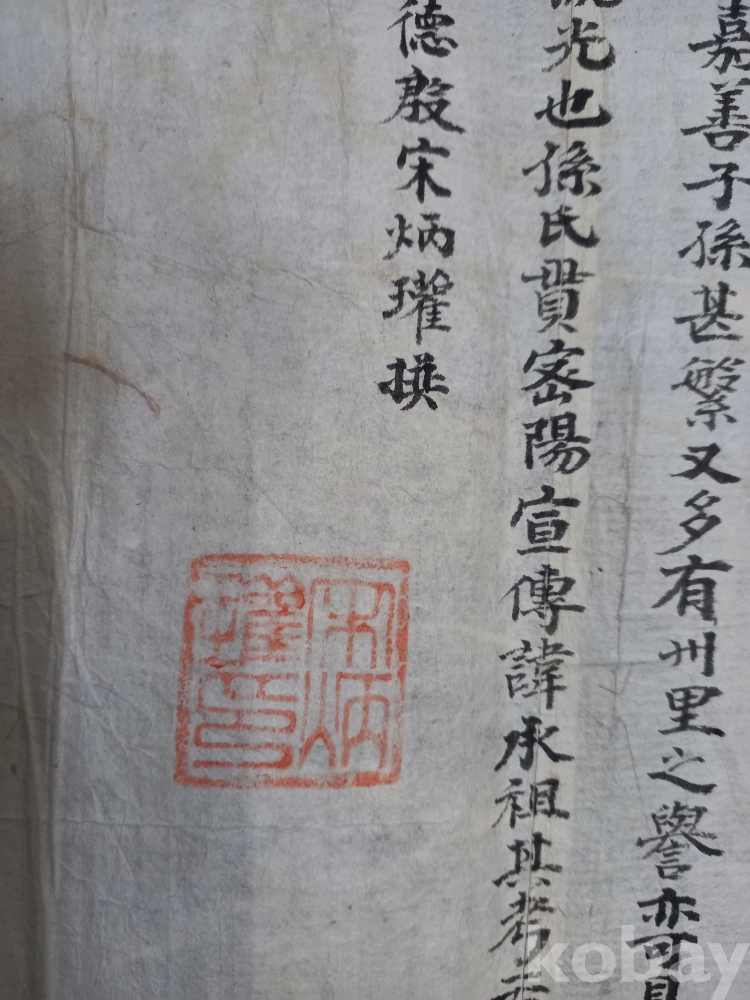 嘉善子孫甚繁又多有州里之譽亦可見
光也孫氏貫密陽宣傳諱承祖其考
德殷宋炳瓘撰
宋炳
瓘印
kobay